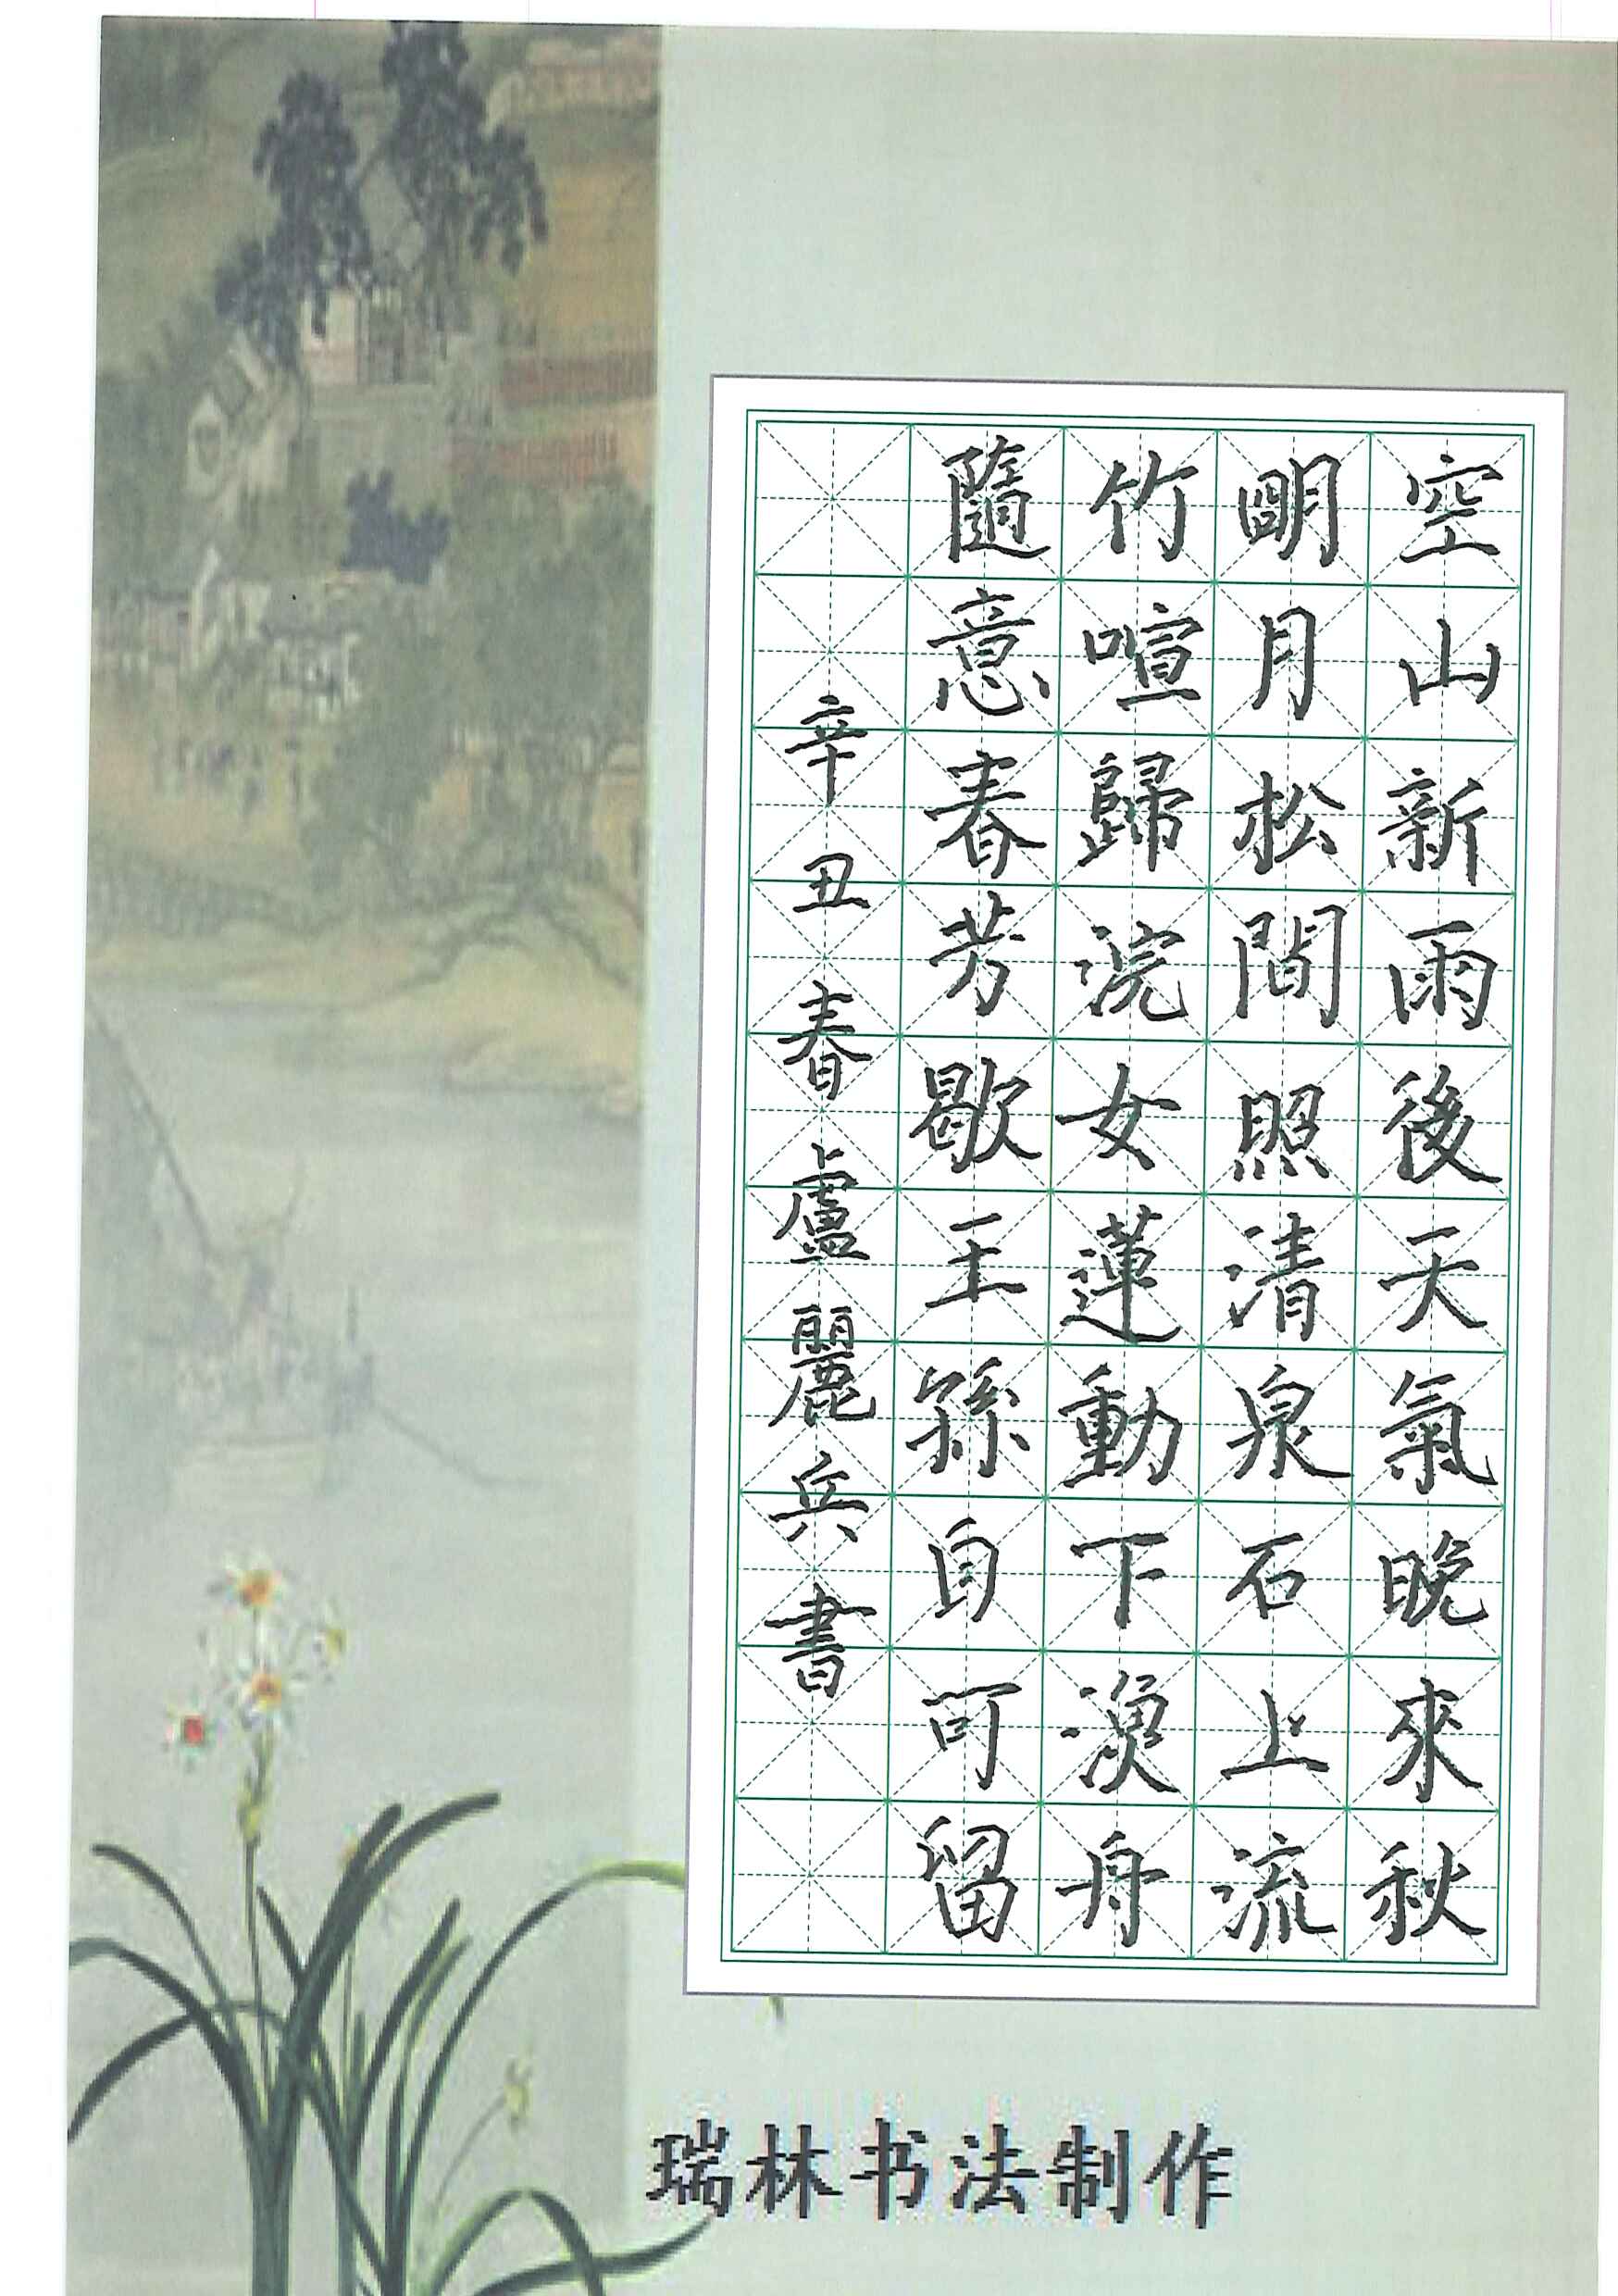 空山新雨後天氣晚來秋
明月松間照清泉石上流
竹喧歸浣女蓮動下漁舟
隨意春芳歇王孫自可留
辛丑春盧麗兵書
瑞林书法制作